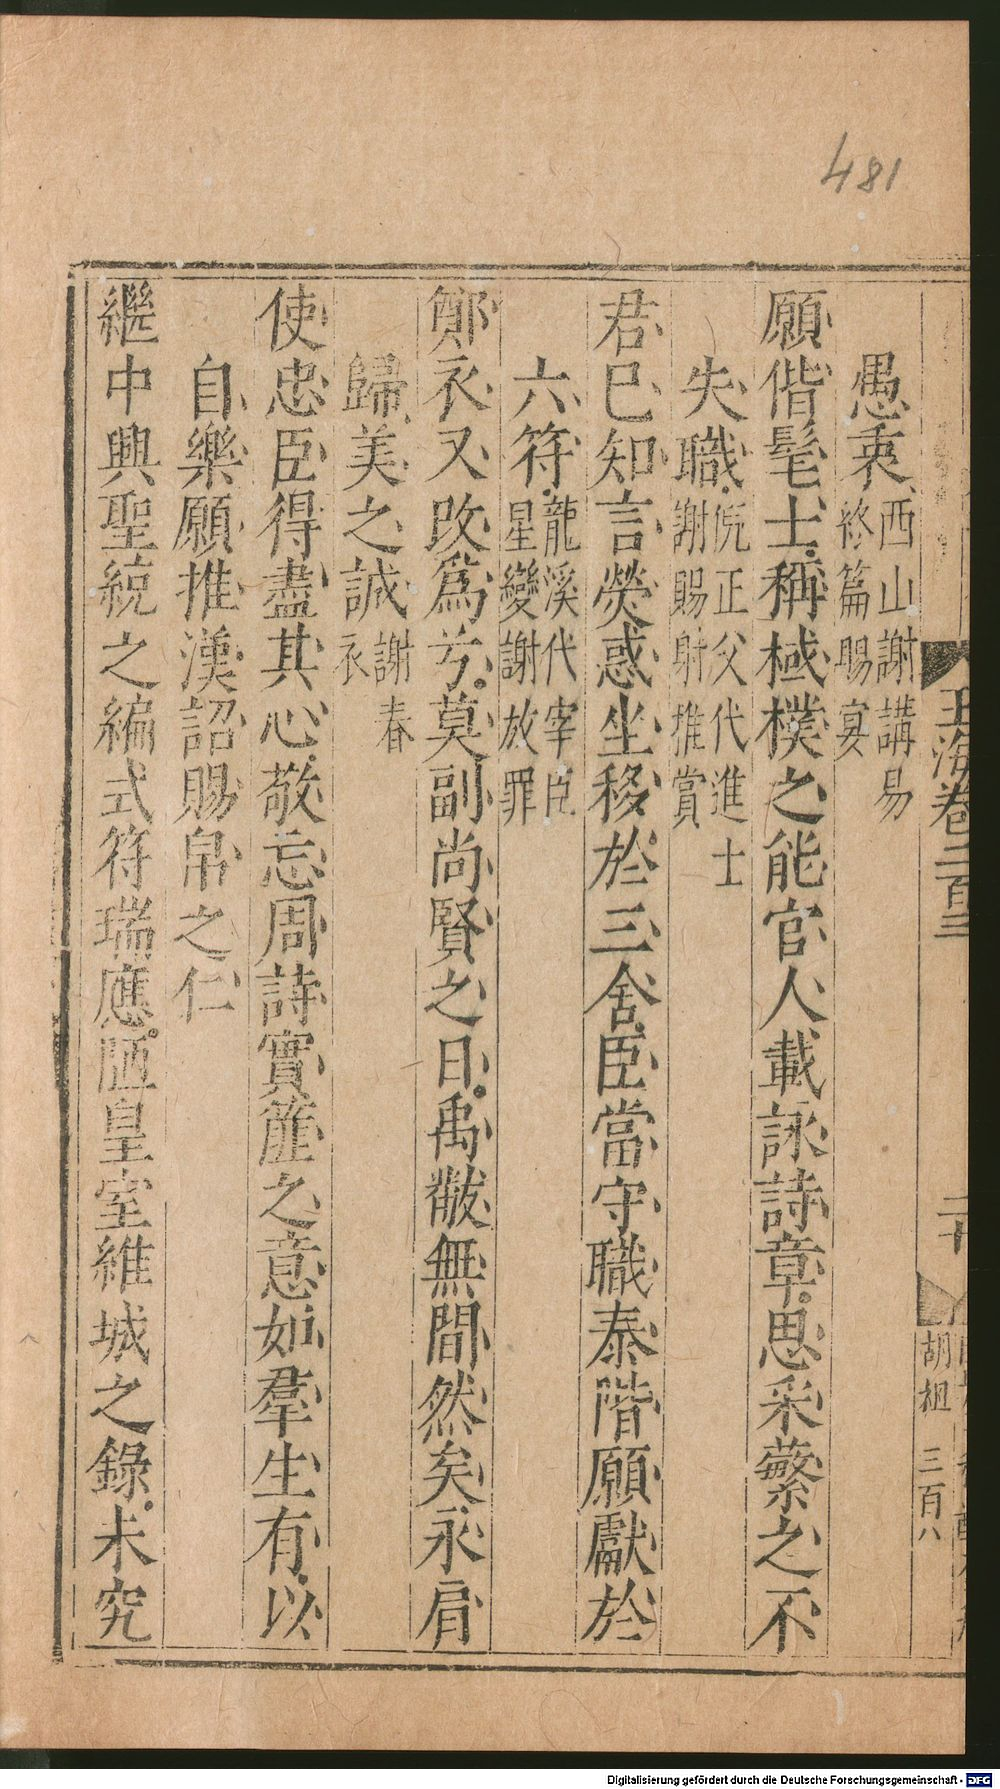 481
愚衷西山謝講易
終篇賜宴
願偕髦士稱棫樸之能官人載詠詩章思采蘩之不
失職倪正父代進士
謝賜射推賞
君已知言熒惑坐移於三舍臣當守職泰階願獻於
六符龍溪代宰臣
星變謝放罪
鄭衣又改爲兮莫副尚賢之日禹黻無間然矣永肩
歸美之誠謝春
衣
使忠臣得盡其心敬忘周詩實篚之意如羣生有以
自樂願推漢詔賜帛之仁
繼中興聖統之編式符瑞應陋皇室維城之錄未究
玉海卷二百三
二十
胡祖 三百八
Digitalisierung gefördert durch die Deutsche Forschungsgemeinschaft - DFG